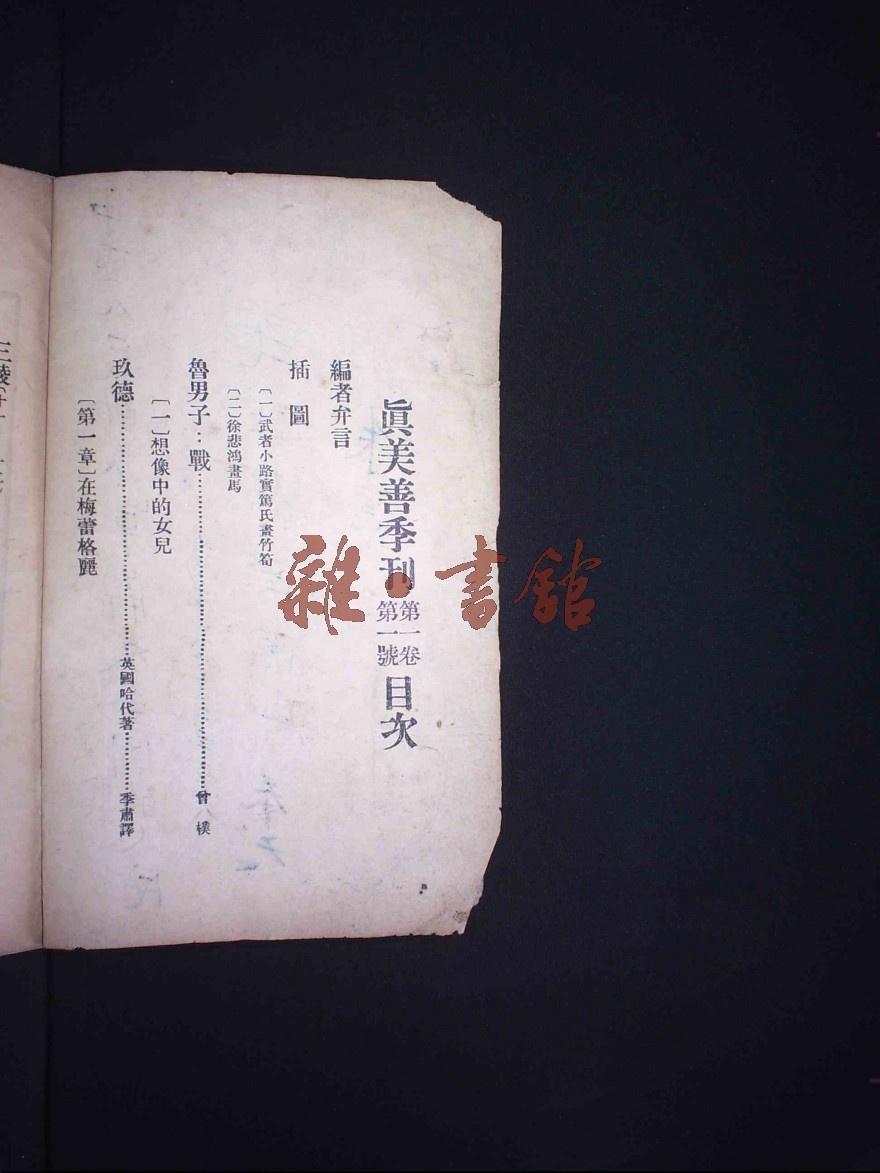 眞美善季刊 第一卷 第一號 目次
編者弁言
插圖
〔一〕武者小路實篤氏畫竹筍
〔二〕徐悲鴻畫馬
魯男子：戰……………曾樸
〔一〕想像中的女兒
玖德……………英國哈代著……………季肅譯
〔第一章〕在梅蕾格麗
雜·書館